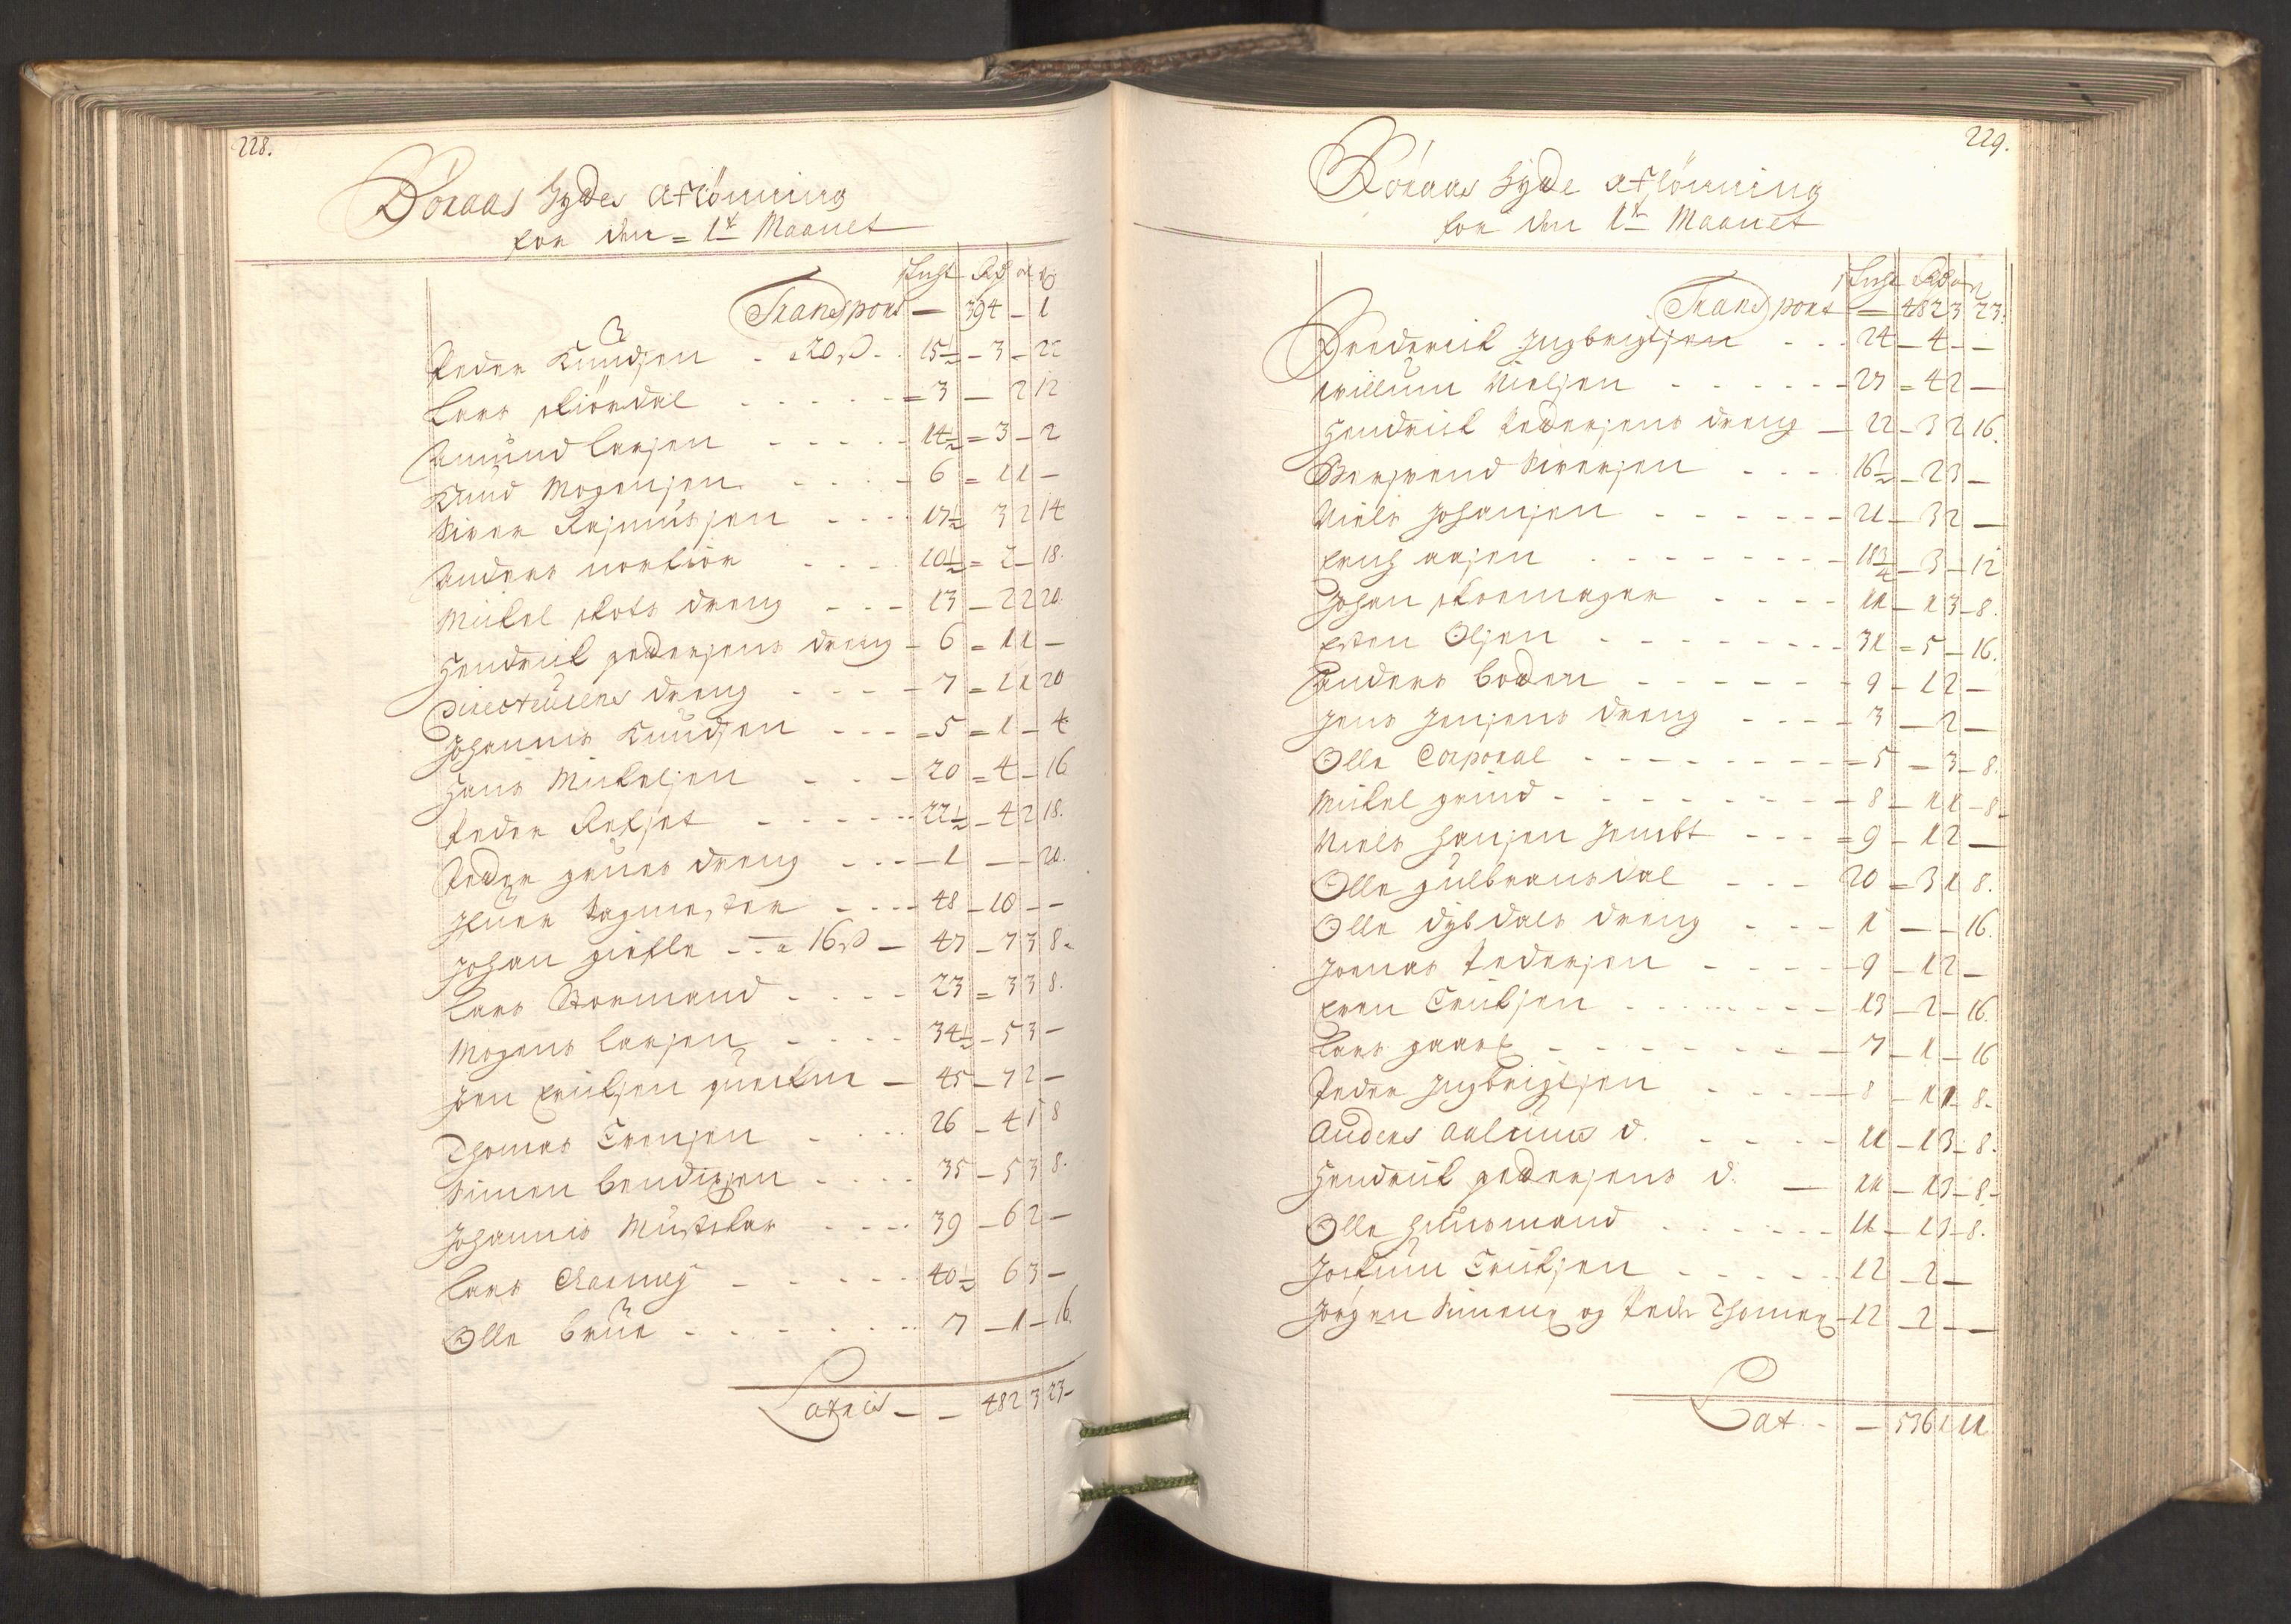 228.
Röraas Hydes aflönning
for den = 1te Maanet
Sticht Rd ort s
Transport — 394 – 1
Peder Knudsen - a 20 s - 15½ – 3 – 22
Lars Skiördal - - - - = 3 – 2 12
Amund Larsen - - - - 14½ = 3 – 2
Knud Mogensen - - - - 6 = 1 1 –
Siver Rasmussen - - - 17½ 3 2 14
Anders norliör - - - 10½ = 2 – 18.
Mickel Skots dreng - - - 13 – 2 2 20
Hendrick pedersens dreng – 6 = 1 1 –
Directeurens dreng - - - - 7 = 1 1 20
Johannis Knudsen - - - = 5 = 1 – 4
Hans Mickelsen - - - 20 = 4 – 16
Peder Refset - - - - 22½ – 4 2 18.
Peder dreng - - - – 1 — – 20.
Ifuer Sagmester - - - 48 – 10 – –
Johan gielle - - a 16 s – 47 – 7 3 8.
Lars Bormand - - - - 23 = 3 3 8.
Mogens Larsen - - - - 34½ – 5 3 –
Jon Erichsen – 45 – 7 2 –
Thomas Trensen - - - 26 – 4 1 8
Simen bendixsen - - - - 35 – 5 3 8.
Johannis - - - - 39 – 6 2 –
Lars - - - - - 40½ 6 3 –
Olle brue - - - - - - 7 – 1 – 16.
Lateris – – 482 3 23 –
229.
Röraas Hyde aflönning
for den 1te Maanet
Sticht Rd ort s
Transport — 482 3 23.
Frederick Ingbrigtsen - - - 24 – 4 – –
Willum Nielsen - - - - - - 27 = 4 2 —
Hendrick Pedersens dreng – 22 – 3 2 16.
Bersvend Siversen - - - 16½ – 2 3 –
Niels Johansen - - - - - - 21 – 3 2 —
Erich aasen - - - - - - - 18¾ – 3 – 12
Johan Skomager - - - - 11 – 1 3 – 8.
Esten Olsen - - - - - - - 31 = 5 – 16.
Anders boden - - - - - - 9 – 1 2 –
Jens Jensens dreng - - - - 3 — 2 —
Olle Corporal - - - - - - - – 5 = 3 – 8.
Mickel - - - - - - - – 8 – 1 1 – 8 –
Niels Hansen Jembt - - - = 9 – 1 2 —
Olle gulbransdal - - - 20 = 3 1 8.
Olle dybdals dreng - - - 1 — – 16.
Jonas Pedersen - - - - – 9 – 1 2 –
Even Erichsen - - - - - - 13 – 2 – 16.
Lars gaas - - - - - - - – 7 – 1 – 16
Peder Ingbrigtsen - - - – 8 – 1 1 – 8 –
Anders d. - - - - - 11 – 1 3 – 8.
Hendrick pedersens d. — 11 – 1 3 – 8 –
Olle Huusmand - - - - - - 11 – 1 3 – 8.
Jockum Erichsen - - - - - 12 – 2 —
Jörgen Simens og Peder Thomes – 12 – 2 – —
Lat. - – 536 1 11.